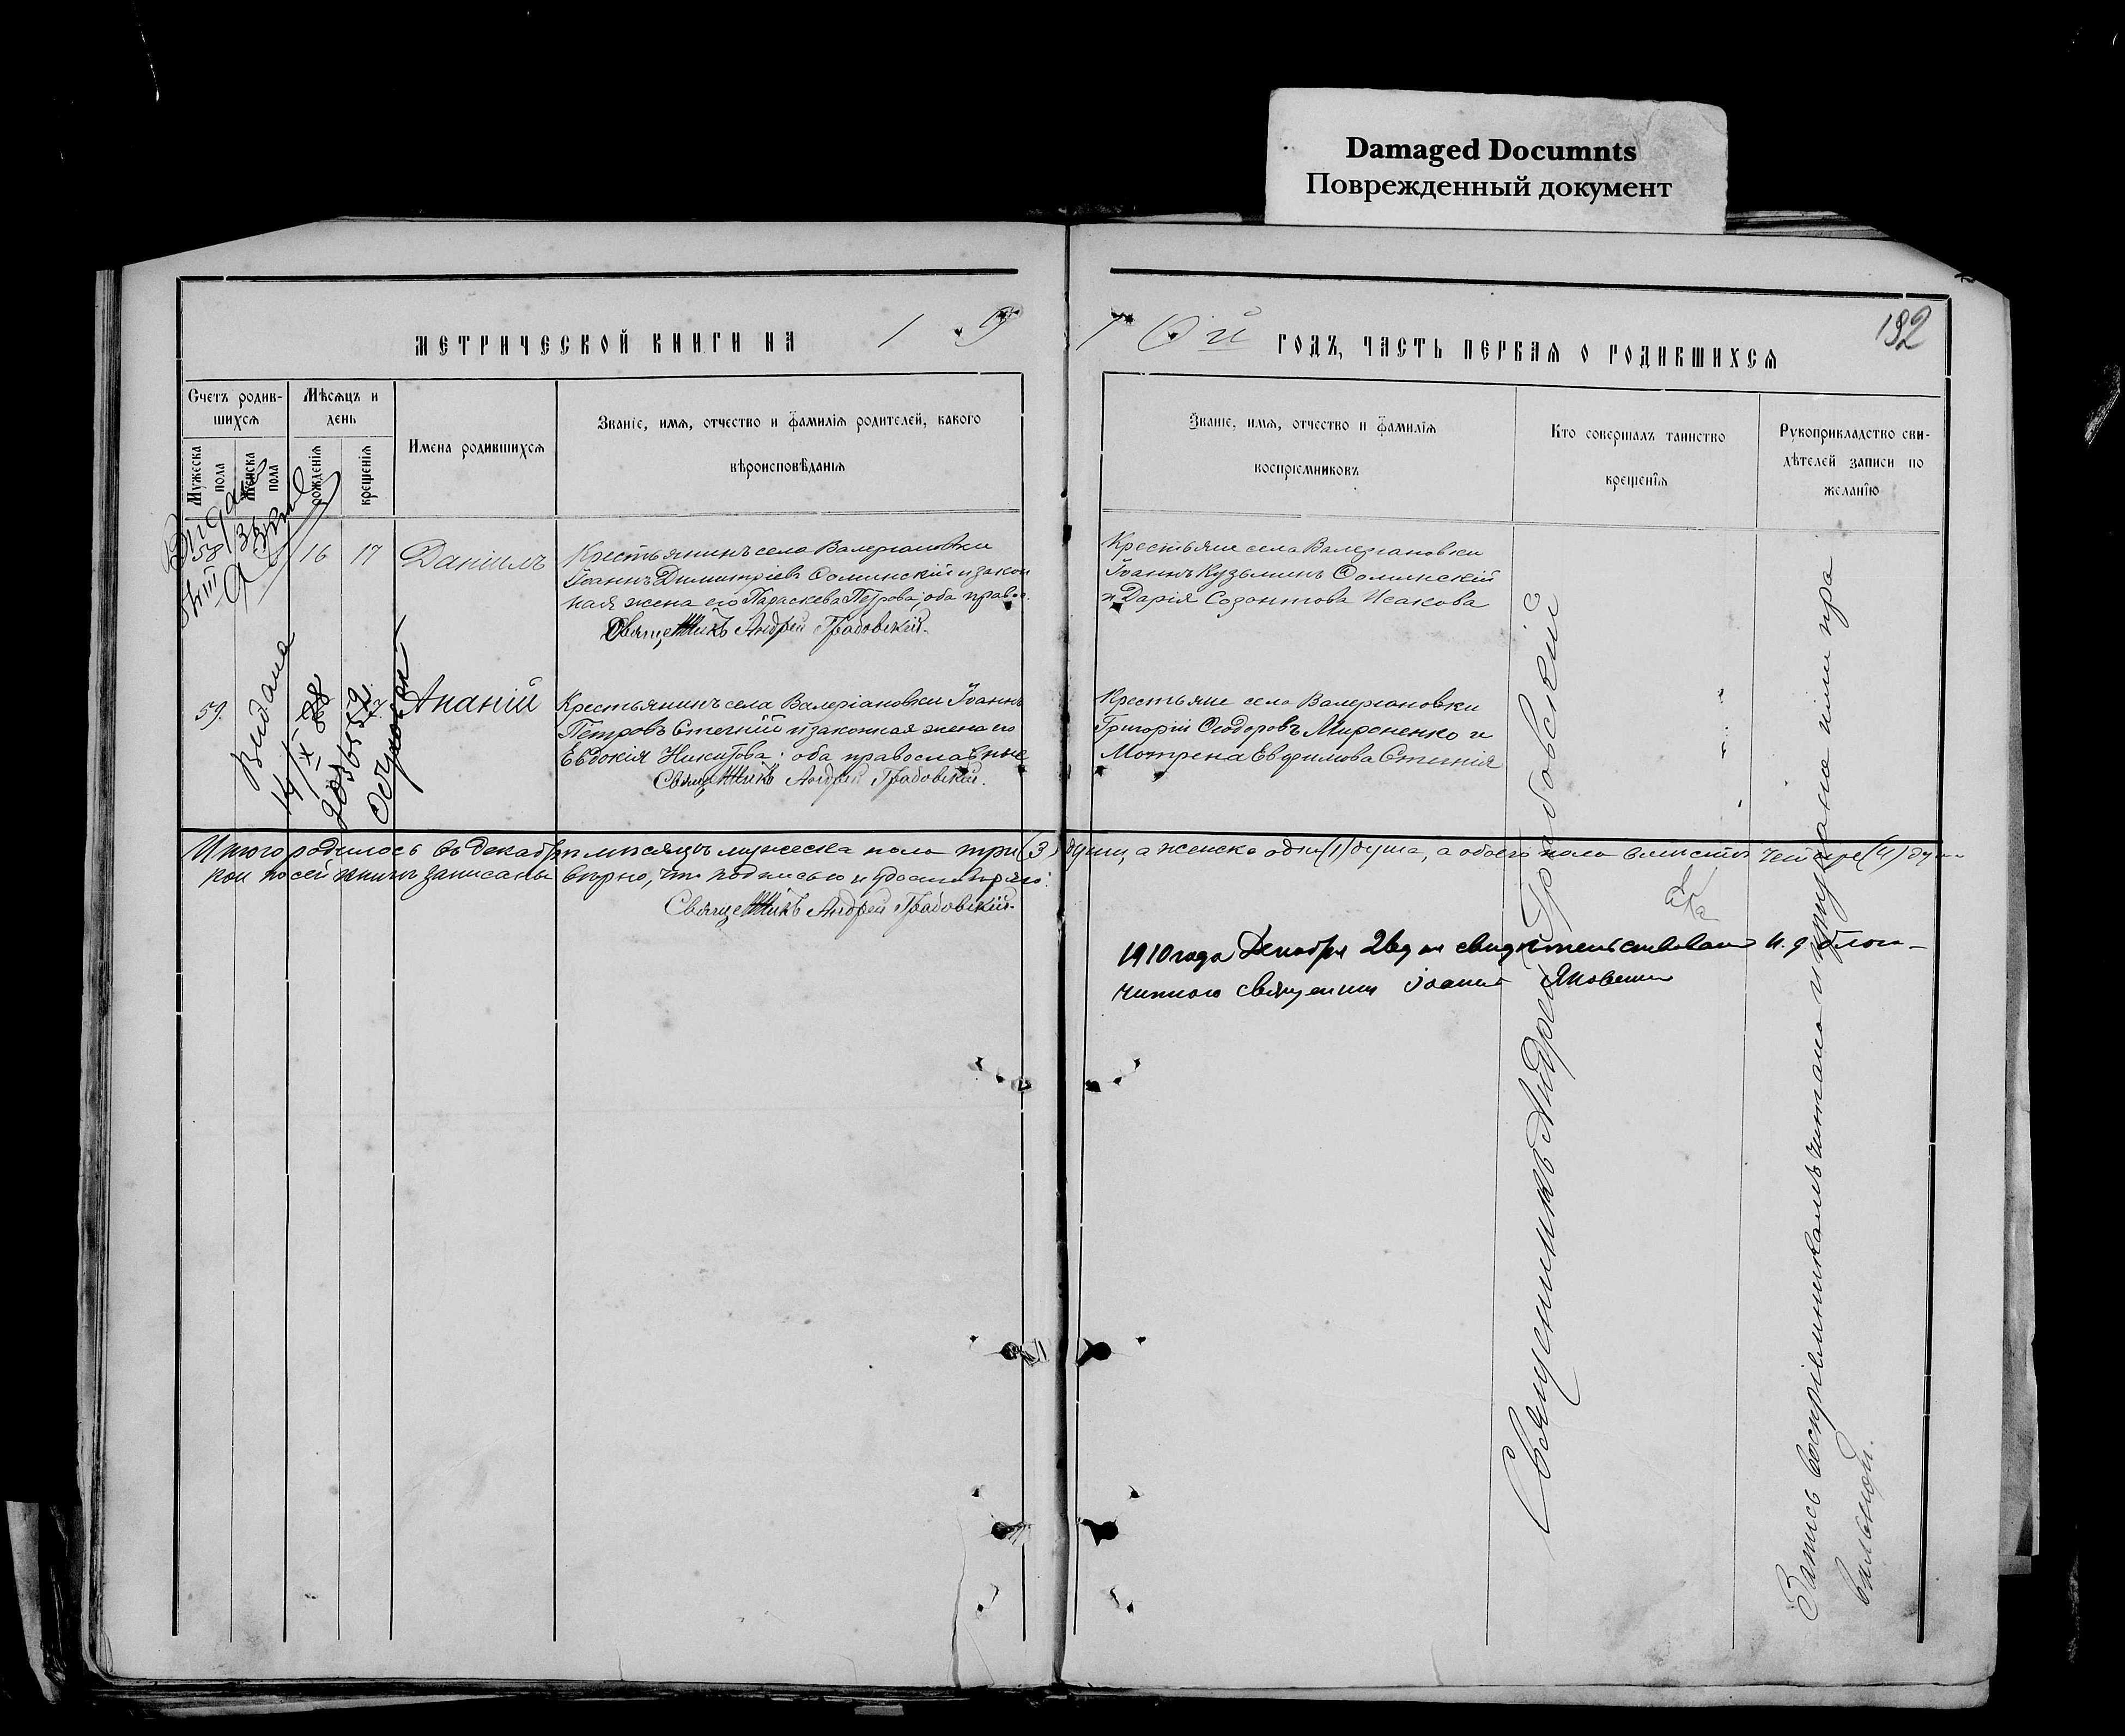 Damaged Documnts
Поврежденный документ
МЕТРИЧЕСКОЙ КНИГИ НА 19
10й ГОДЪ, ЧАСТЬ ПЕРВАЯ О РОДИВШИХСЯ
192
Счетъ родив-
шихся
Мужеска пола
Женска пола
Мѣсяцъ и
день
рожденія
крещенія
Имена родившихся
Званіе, имя, отчество и фамилія родителей, какого
вѣроисповѣданія
Званіе, имя, отчество и фамилія
воспріемниковъ
Кто совершалъ таинство
крещенія
Рукоприкладство сви-
дѣтелей записи по
желанію
58
16 17 Даніилъ
Крестьянинъ села Валеріановки
Іоаннъ Димитріевъ Соминскій и закон
ная жена его Параскева Петрова; оба правос.
Священникъ Андрей Грабовскій.
Крестьяне села Валеріановки
Іоаннъ Кузьминъ Соминскій
и Дарія Созонтова Исакова
59.
Видана
Ананій
Крестьянинъ села Валеріановки Іоаннъ
Петровъ Стегній и законная жена его
Евдокія Никитова; оба православные
Священникъ Андрей Грабовскій.
Крестьяне села Валеріановки
Григорій Ѳеодоровъ Мироненко и
Мотрена Евфимова Стегнія
Итого родилось въ декабрѣ мѣсяцѣ мужеска пола три (3) души, а женска одна (1) душа, а обоего пола вмѣстѣ четыре (4) душ
кои по сей книгѣ записаны вѣрно, что подписью и удостовѣряю:
Священникъ Андрей Грабовскій.
1910 года Декабря 28 дня свидѣтельствовалъ и. д. благо-
чиннаго священникъ Іоаннъ
Священникъ Андрей Грабовскій
Запись воспріемникамъ читана и признана ими пра
вильной.